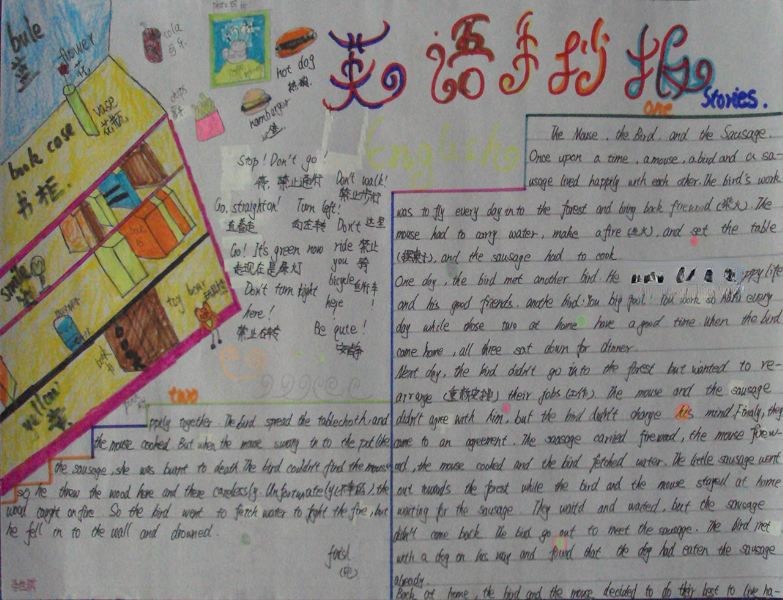 英语手抄报
one
Stories.
bule
蓝
flower
花
vase
花瓶
book case
书柜.
smile
yellow
toy bear
cola
可乐
hot dog
热狗
hamberger
汉堡
Stop! Don't go!
禁止通行
Don't walk!
禁止步行
Go straight on!
直着走
Turn left!
向左转
Don't
ride
you
bicycle
here!
这里
禁止
骑
自行车
Go! It's green now
走现在是绿灯
Don't turn right
here!
禁止右转
Be quite!
安静
The Mouse, the Bird, and the Sausage
Once upon a time, a mouse, a bird and a sa-
usage lived happily with each other. The bird's work
was to fly every day in to the forest and bring back firewood (柴火). The
mouse had to carry water, make a fire (生火), and set the table
(摆桌子), and the sausage had to cook.
One day, the bird met another bird. He ppy life
and his good friends. anothe bird: You big fool. You work so hard every
day while those two at home have a good time when the bird
came home, all three sat down for dinner.
Next day, the bird didn't go into the forest but wanted to re-
arrange (重新安排) their jobs (工作). The mouse and the sausage
didn't agree with him, but the bird didn't change his mind. Finaly, they
came to an agreement. The sausage carried firewood, the mouse firew-
od, the mouse cooked and the bird fetched water. The little sausage went
out rounds the forest while the bird and the mouse stayed at home
waiting for the sausage. They waitd and waited, but the sausage
didn't come back. The bird go out to meet the sausage. The bird met
with a dog on his way and found that do dog had eaten the sausage
already.
Back at home, the bird and the mouse decided to do their best to live ha-
two
appily together. The bird spread the tablechoth, and
the mouse cooked. But when the mouse swang in to the pot like
the sausage, she was burnt to death. The bird couldn't find the mouse
so he threw the wood here and there carelessly. Unfortunately (不幸的), the
wood caught on fire. So the bird went to ferch water to fight the fire, but
he fell in to the wall and drowned.